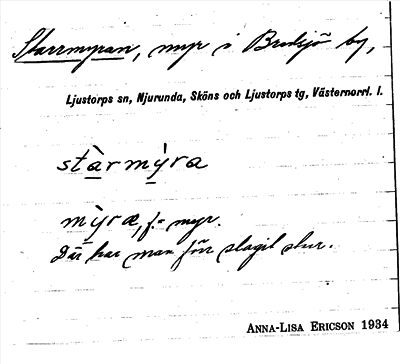 Starrmyran, myr i Bredsjö by,
Ljustorps sn, Njurunda, Sköns och Ljustorps tg, Västernorrl. l.
stàrmỳra
mỳra, f. = myr.
Där har man förr slagit starr.
ANNA-LISA ERICSON 1934